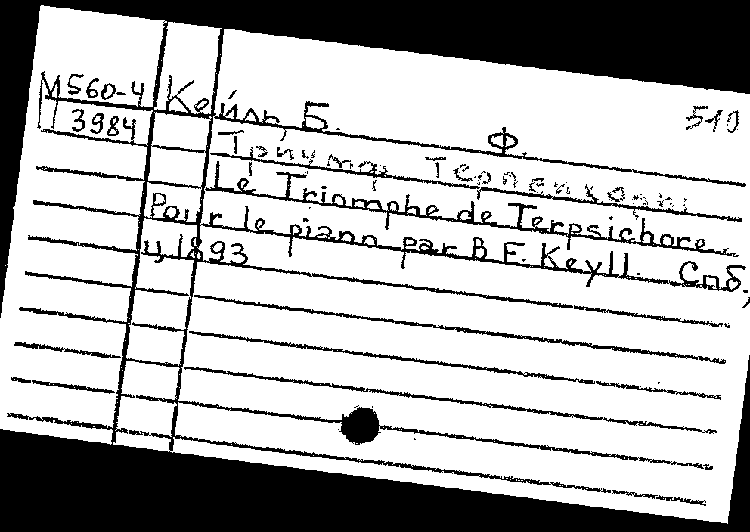 М560-4 Кейль, Б. Ф. 510
3984 Триумф Терпсихоры
Le Triomphe de Terpsichore.
Pour le piano par B F. Keyll. Спб,
ц, 1893